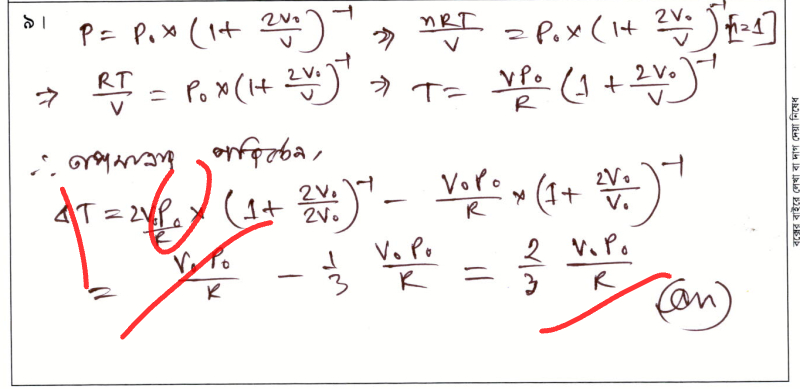 ৯।
P = P₀ × (1 + 2V₀/V)⁻¹ ⇒ nRT/V = P₀ × (1 + 2V₀/V)⁻¹ [n=1]
⇒ RT/V = P₀ × (1 + 2V₀/V)⁻¹ ⇒ T = VP₀/R (1 + 2V₀/V)⁻¹
∴ তাপমাত্রার পরিবর্তন,
ΔT = 2V₀P₀/R × (1 + 2V₀/2V₀)⁻¹ − V₀P₀/R × (1 + 2V₀/V₀)⁻¹
= V₀P₀/R − 1/3 V₀P₀/R = 2/3 V₀P₀/R (Ans)
বক্সের বাইরে লেখা বা দাগ দেয়া নিষেধ